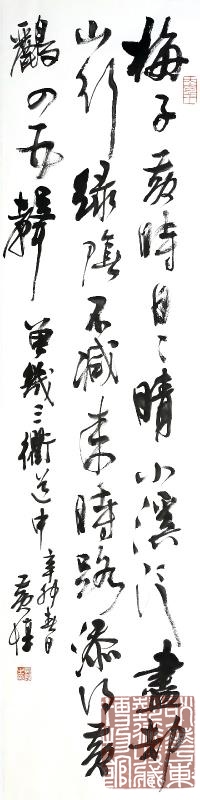 梅子黄時日〻晴小溪泛盡却
山行緑陰不減来時路添得黄
鸝四五聲
曾幾三衢道中 辛卯春日
黄惇